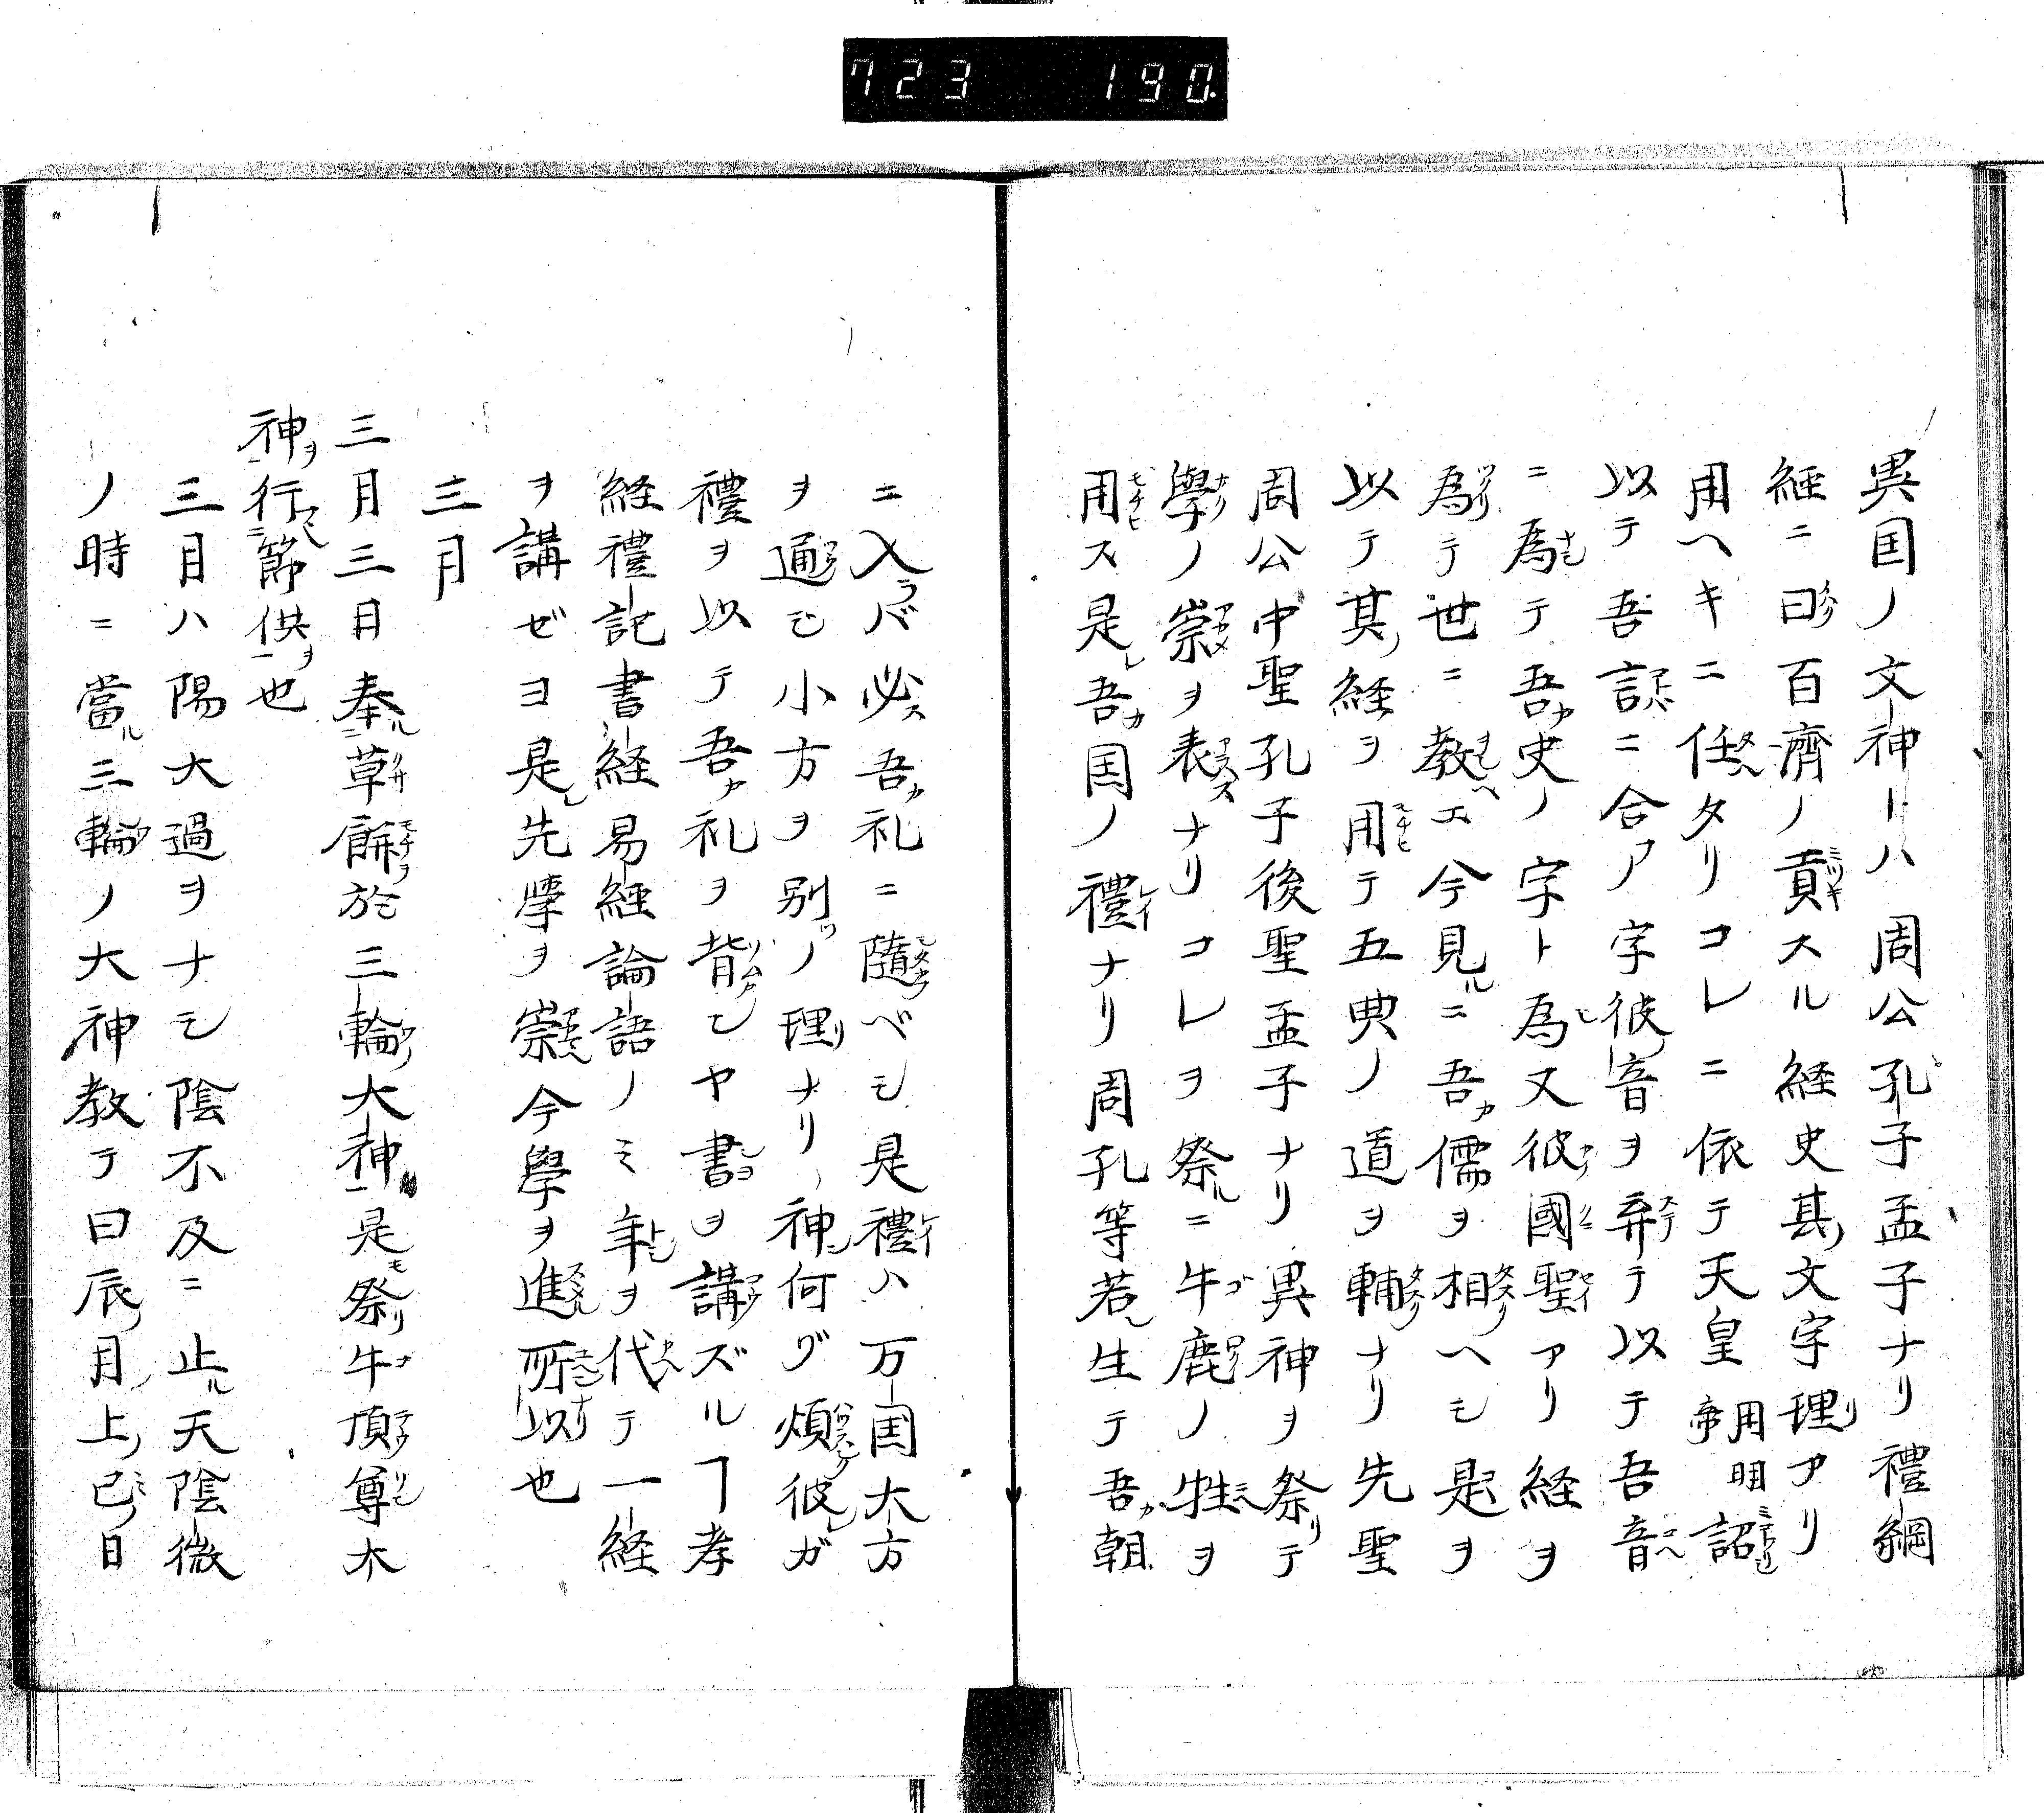 723 190
異国ノ文神ーハ周公孔子孟子ナリ禮綱
経ニ曰百濟ノ貢スル経史其文字理アリ
用ヘキニ任タリコレニ依テ天皇用明帝詔
以テ吾言ニ合ア字彼音ヲ弃テ以テ吾音
ニ為テ吾史ノ字ト為又彼國聖アリ経ヲ
為テ世ニ教エ今見ニ吾儒ヲ相ヘシ是ヲ
以テ其経ヲ用テ五典ノ道ヲ輔ナリ先聖
周公中聖孔子後聖孟子ナリ異神ヲ祭テ
學ノ崇ヲ表ナリコレヲ祭ニ牛鹿ノ牲ヲ
用ス是吾国ノ禮ナリ周孔等若生テ吾朝
ニ入バ必吾礼ニ隨ベシ是禮ハ万国大方
ヲ通シ小方ヲ別ノ理ナリ神何ゾ煩彼ガ
禮ヲ以テ吾礼ヲ背シヤ書ヲ講ズルヿ孝
経禮記書経易経論語ノミ年ヲ代テ一経
ヲ講ゼヨ是先學ヲ崇今學ヲ進所以也
三月
三月三日奉草餅於三輪大神是祭牛頂尊木
神行節供也
三月ハ陽大過ヲナシ陰不及ニ止天陰微
ノ時ニ當三輪ノ大神教テ曰辰月上巳日